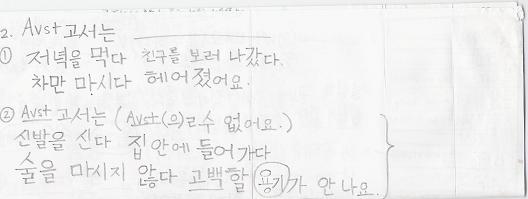 2. Avst 고서는
① 저녁을 먹다 친구를 보러 나갔다.
차만 마시다 헤어졌어요.
② Avst 고서는 (Avst(으)ㄹ 수 없어요.)
신발을 신다 집 안에 들어가다
술을 마시지 않다 고백할 용기가 안 나요.